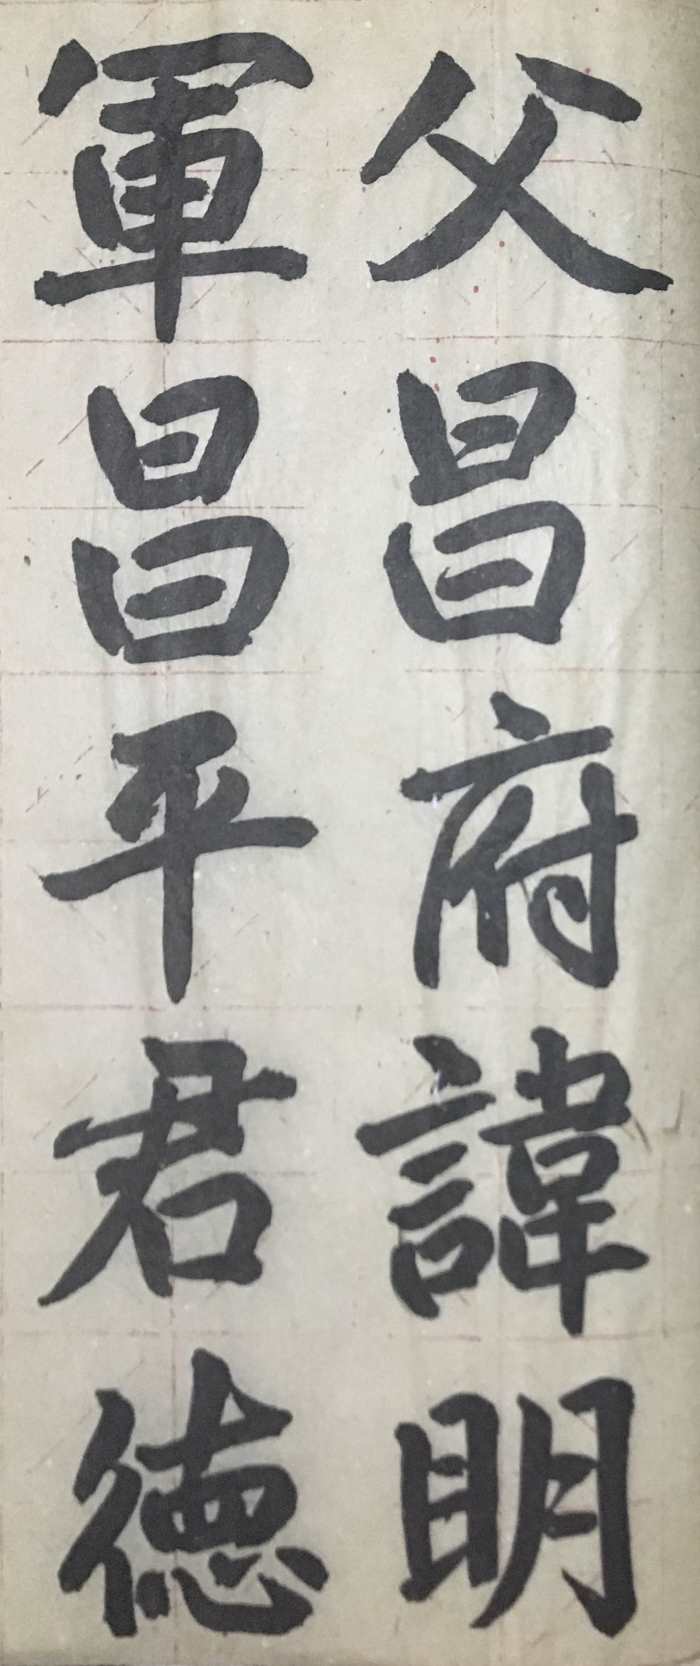 父昌府諱明
軍昌平君德